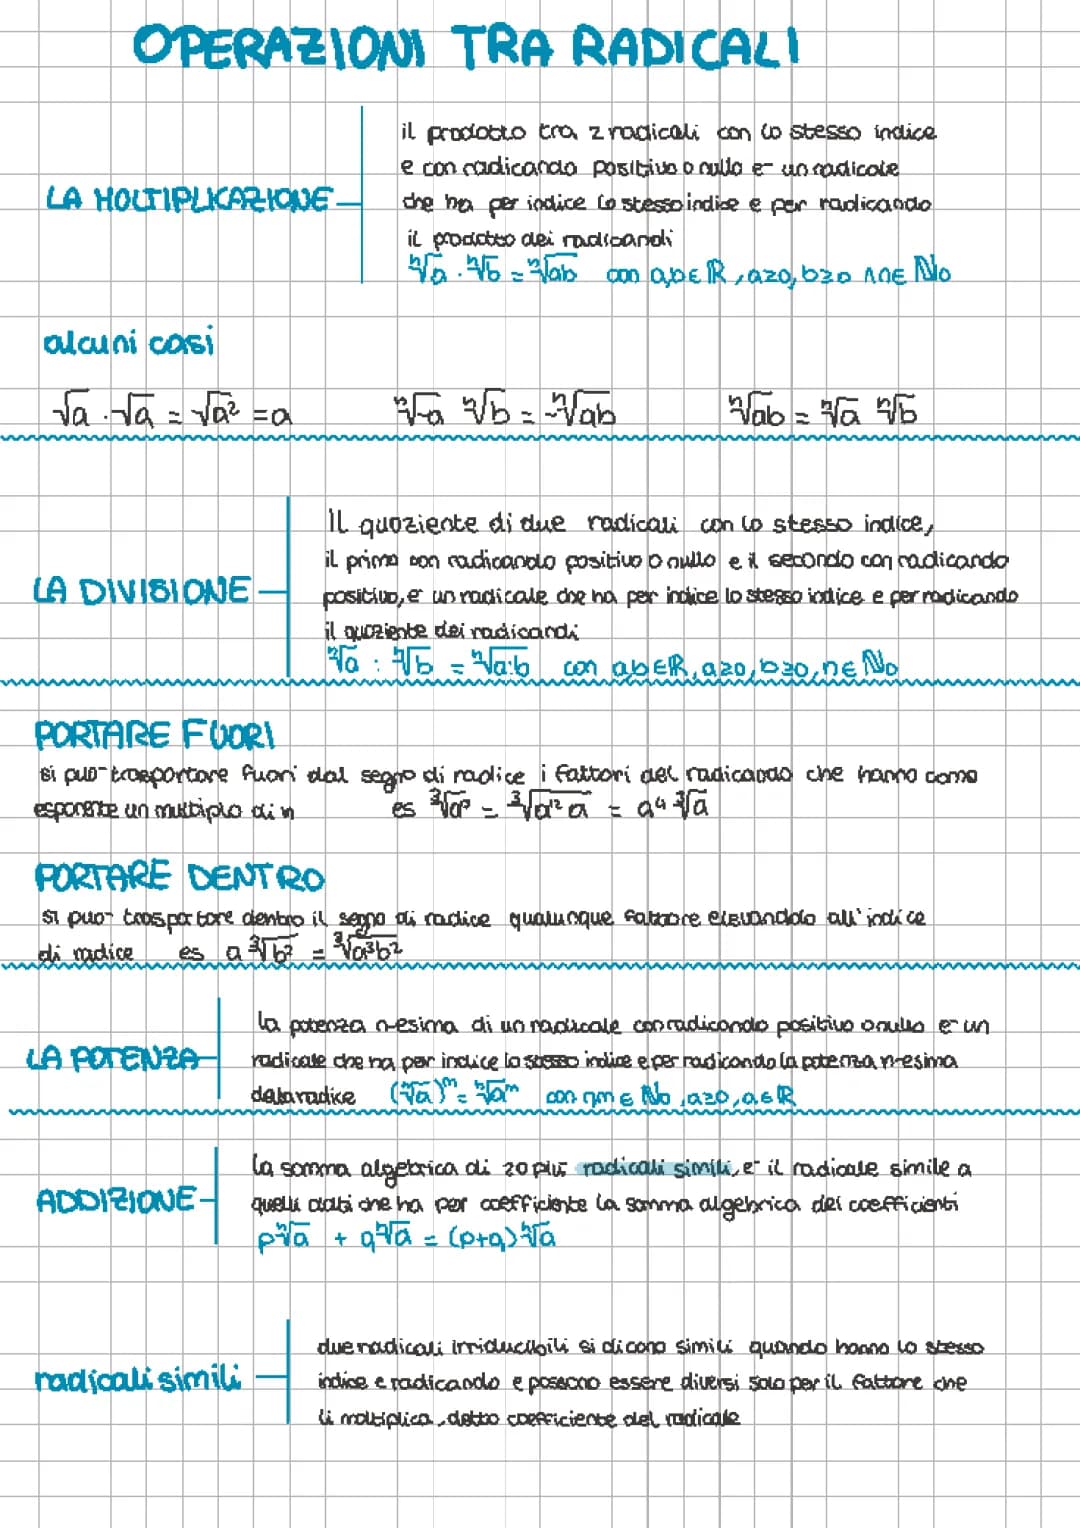 OPERAZIONI TRA RADICALI
il prodotto tra 2 radicali con lo stesso indice
e con radicando positivo o nullo e- un radicale
LA MOLTIPLICAZIONE
che ha per indice lo stesso indice e per radicando
il prodotto dei radicandi
ⁿ√a · ⁿ√b = ⁿ√ab con a,b∈R, a≥0, b≥0 n∈ N₀
alcuni casi
√a · √a = √a² = a
ⁿ√-a ⁿ√b = -ⁿ√ab
ⁿ√ab = ⁿ√a ⁿ√b
IL quoziente di due radicali con lo stesso indice,
il primo con radicando positivo o nullo e il secondo con radicando
LA DIVISIONE
positivo, e' un radicale che ha per indice lo stesso indice e per radicando
il quoziente dei radicandi
ⁿ√a : ⁿ√b = ⁿ√a:b con a,b∈R, a≥0, b≥0, n∈ N₀
PORTARE FUORI
si puo- trasportare fuori dal segno di radice i fattori del radicando che hanno come
esponente un multiplo di n
es ³√a¹³ = ³√a¹² a = a⁴ ³√a
PORTARE DENTRO
si puo- trasportare dentro il segno di radice qualunque fattore elevandolo all'indice
di radice es a ³√b² = ³√a³b²
la potenza n-esima di un radicale con radicando positivo o nullo e' un
LA POTENZA
radicale che ha per indice lo stesso indice e per radicando la potenza n-esima
della radice (ⁿ√a)ᵐ = ⁿ√aᵐ con n,m ∈ N₀, a≥0, a∈R
la somma algebrica di 2 o più radicali simili, e' il radicale simile a
ADDIZIONE
quelli dati che ha per coefficiente la somma algebrica dei coefficienti
pⁿ√a + qⁿ√a = (p+q)ⁿ√a
due radicali irriducibili si dicono simili quando hanno lo stesso
radicali simili
indice e radicando e possono essere diversi solo per il fattore che
li moltiplica, detto coefficiente del radicale